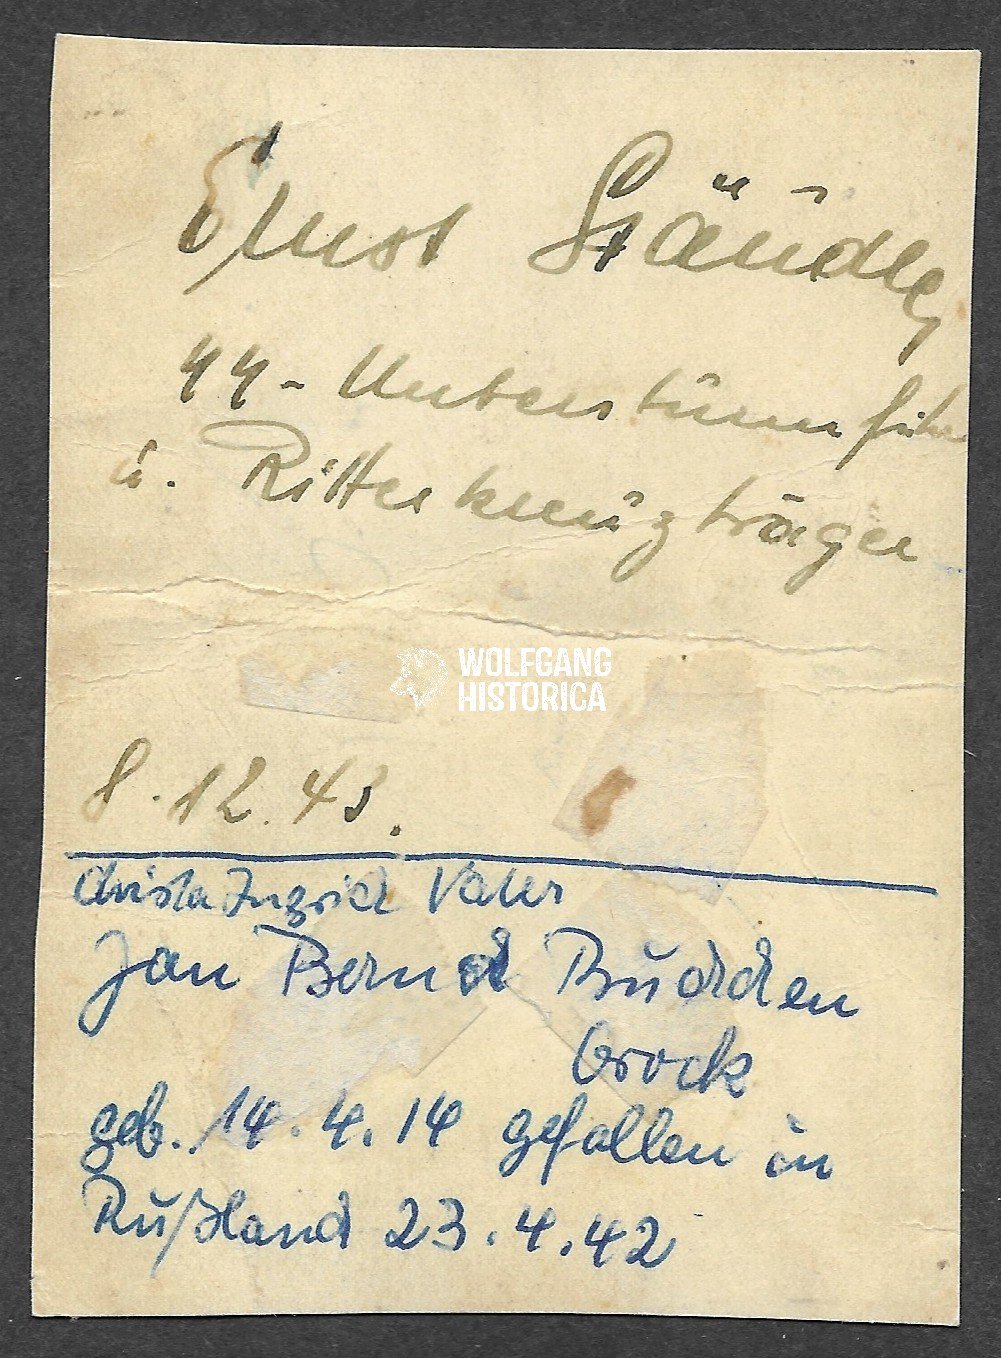 Ernst Stäudle
SS-Untersturmführ
u. Ritterkreuzträger
WOLFGANG
HISTORICA
8.12.43.
Christa Ingrid Vater
Jan Bernd Budden
geb. 14.4.14 gefallen in
Rußland 23.4.42